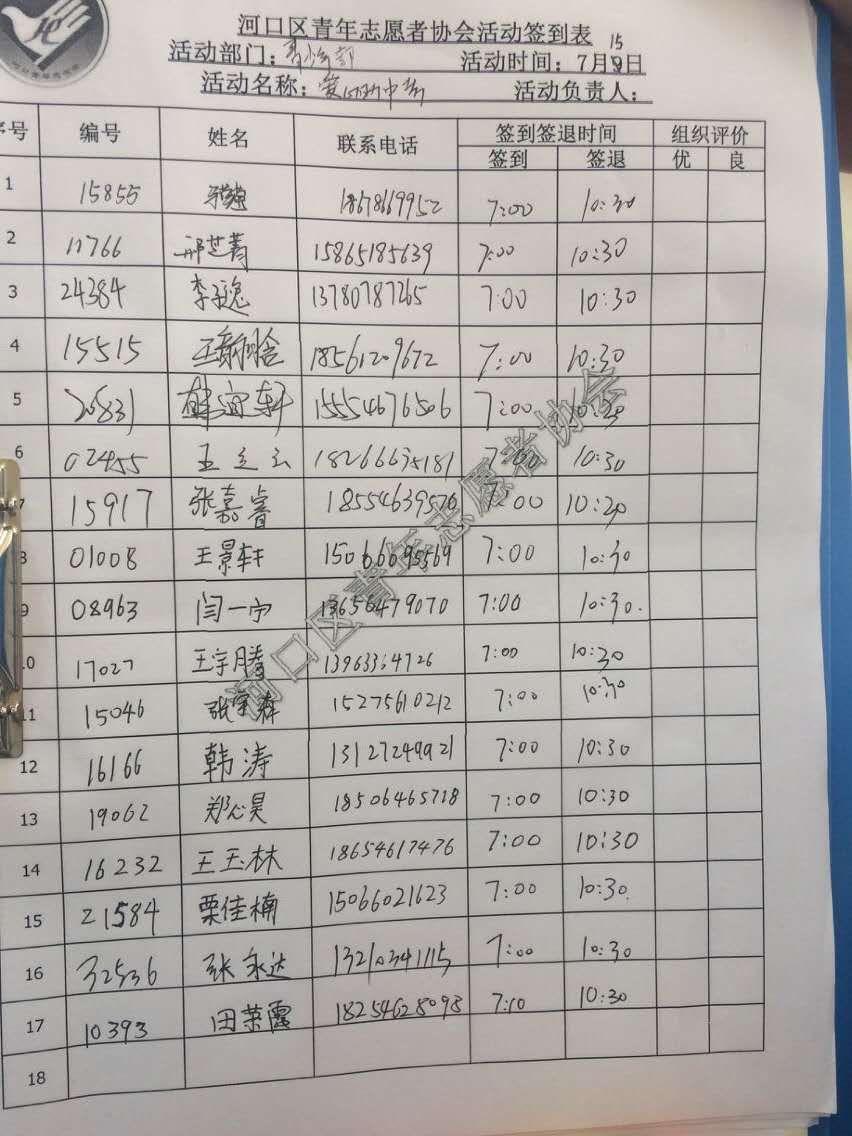 河口区青年志愿者协会活动签到表
活动部门: 青少年部 活动时间: 7月15日
活动名称: 爱心 活动负责人:
序号 编号 姓名 联系电话 签到签退时间 组织评价
签到 签退 优 良
1 15855 18678669952 7:00 10:30
2 11766 邢芝菁 15865185639 7:00 10:30
3 24384 李逸 13780787265 7:00 10:30
4 15515 王 18561209672 7:00 10:30
5 20831 韩宜轩 15554676506 7:00 10:30
6 02455 王立云 18266635181 7:00 10:30
7 15917 张嘉睿 18554639576 7:00 10:20
8 01008 王景轩 15066695569 7:00 10:30
9 08963 闫一宁 13656479070 7:00 10:30.
10 17027 王宇腾 13963364726 7:00 10:30
11 15046 张家森 15275610212 7:00 10:30
12 16166 韩涛 13127249921 7:00 10:30
13 19062 郑心昊 18506465718 7:00 10:30
14 16232 王玉林 18654617476 7:00 10:30
15 21584 栗佳楠 15066021623 7:00 10:30.
16 32536 张永达 13210341115 7:00 10:30
17 10393 田荣霞 18254628098 7:10 10:30
18
河口区青年志愿者协会